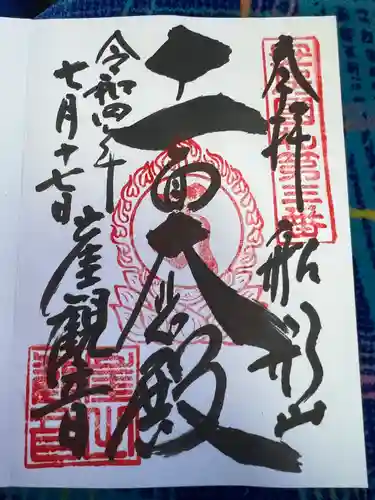 奉拝 船形山
十一面大悲殿
令和四年
七月十七日
産観音